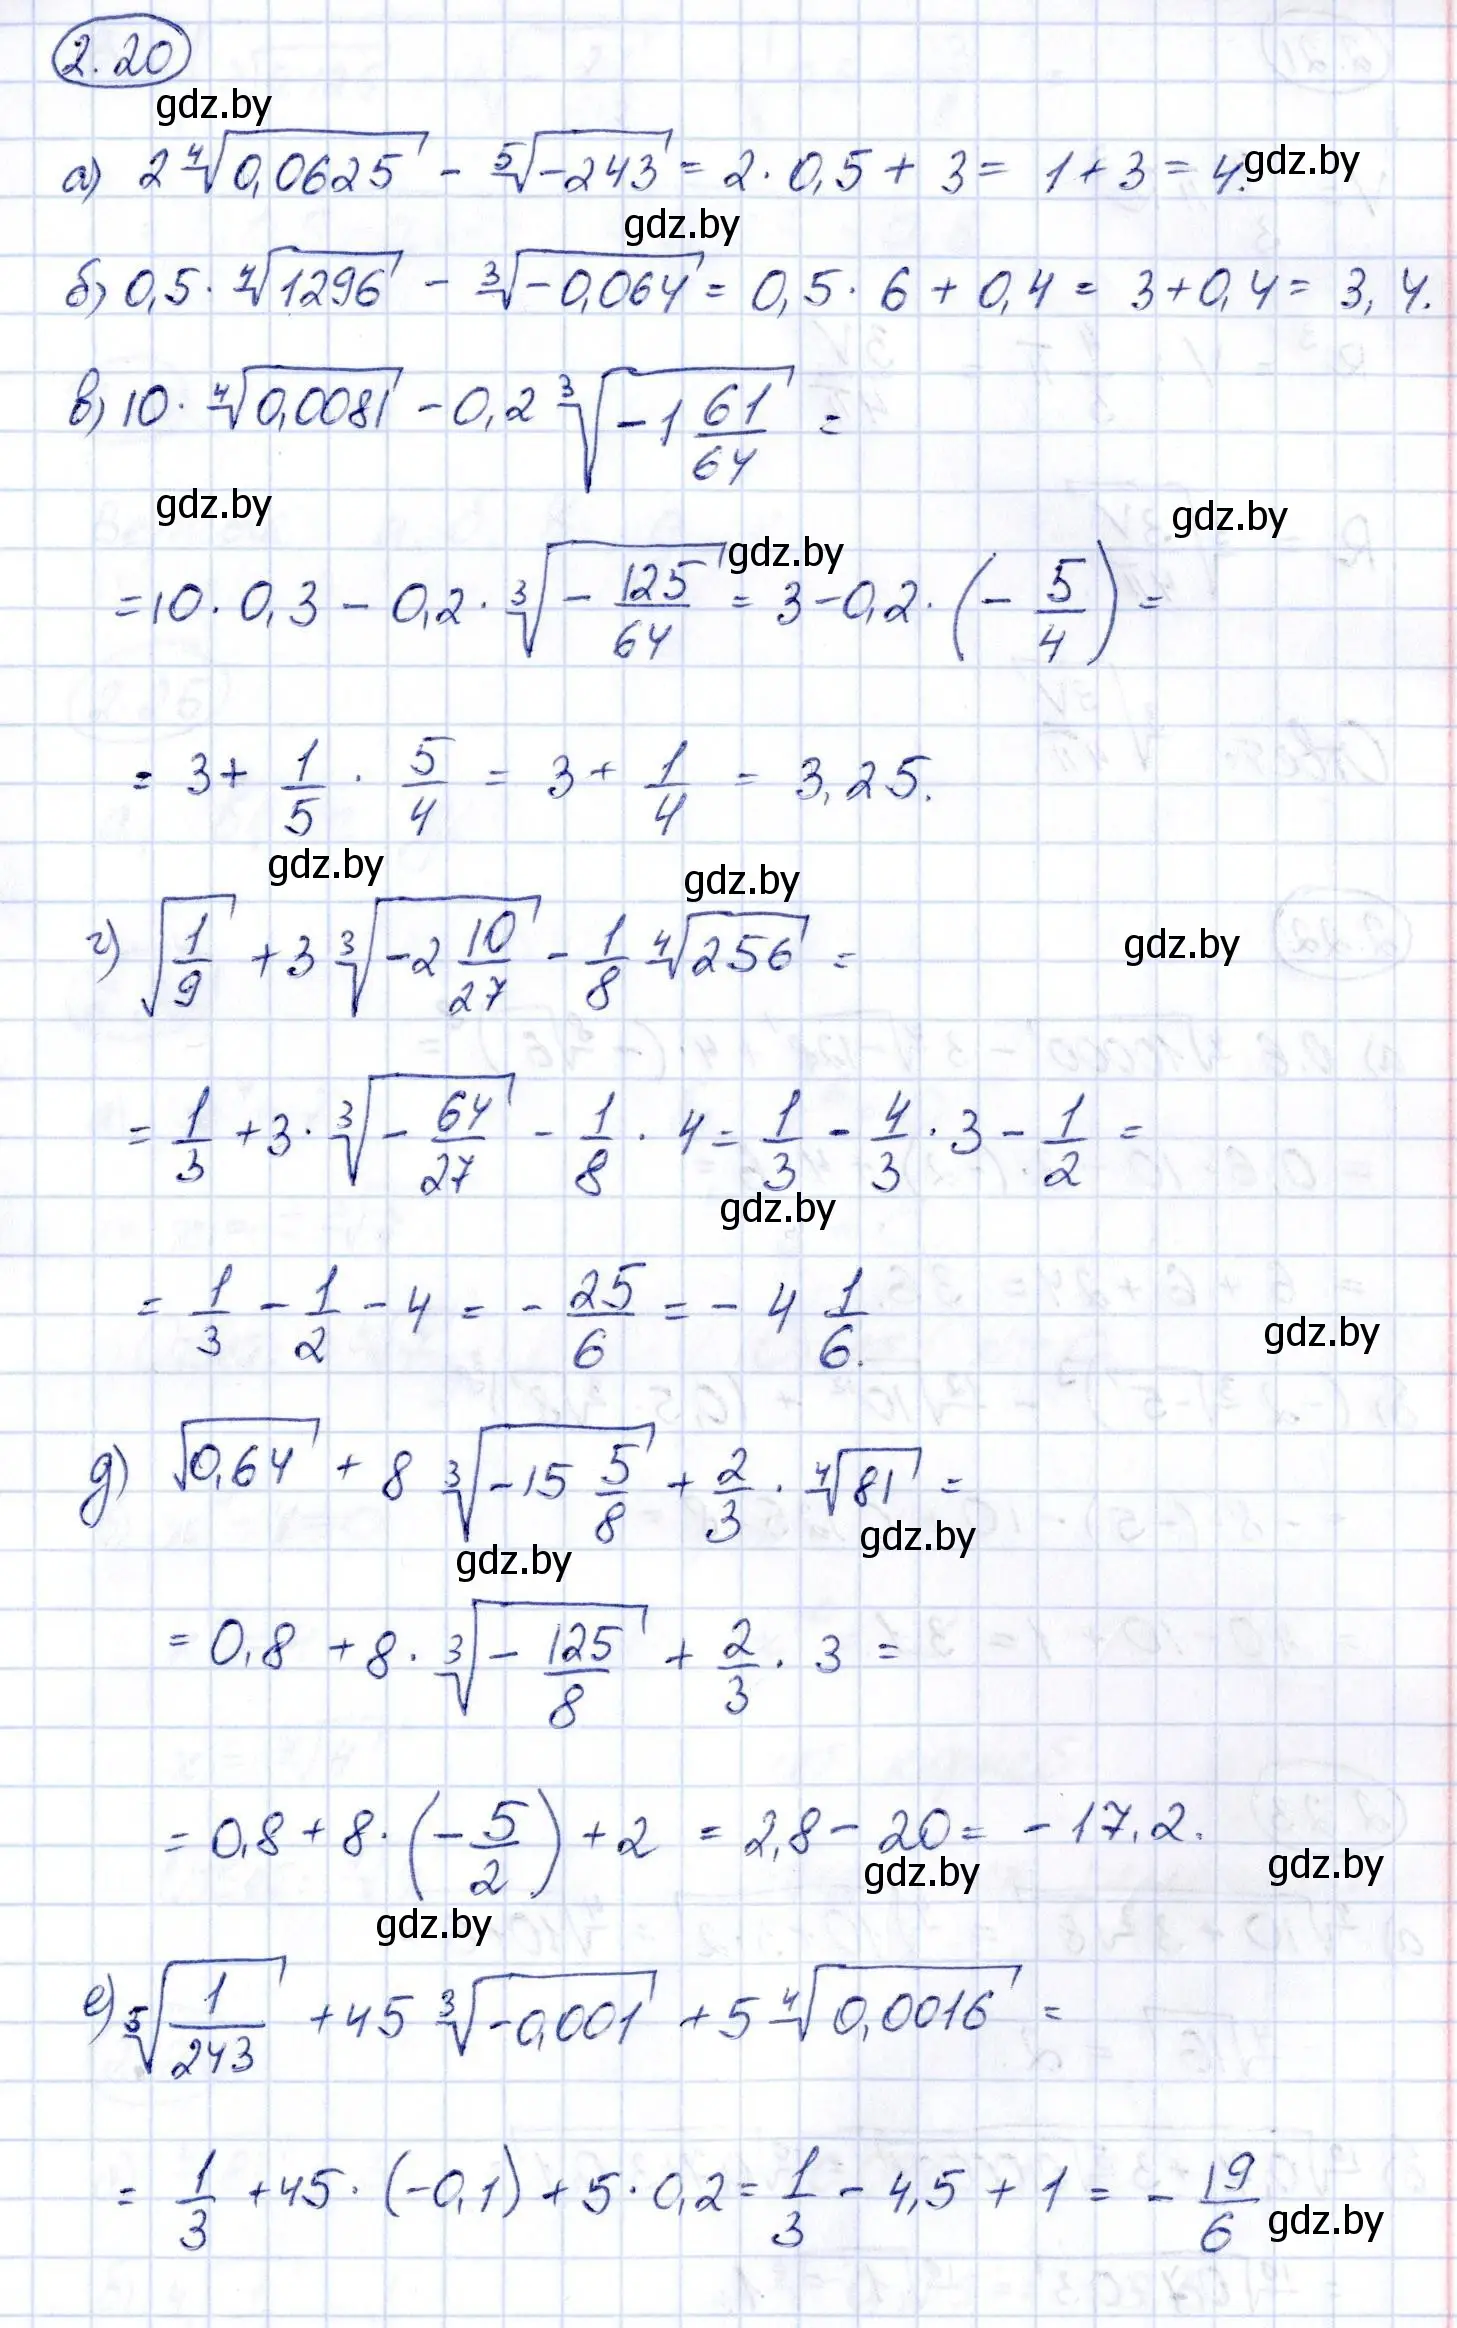 2.20
gdz.by
а) 2⁴√0,0625 - ⁵√-243 = 2·0,5 + 3 = 1+3 = 4.
gdz.by
gdz.by
б) 0,5·⁴√1296 - ³√-0,064 = 0,5·6 + 0,4 = 3+0,4 = 3,4.
в) 10·⁴√0,0081 - 0,2 ³√(-1 61/64) =
gdz.by
gdz.by
gdz.by
= 10·0,3 - 0,2·³√(-125/64) = 3 - 0,2·(-5/4) =
= 3 + 1/5 · 5/4 = 3 + 1/4 = 3,25.
gdz.by
gdz.by
г) √(1/9) + 3 ³√(-2 10/27) - 1/8 ⁴√256 =
gdz.by
= 1/3 + 3·³√(-64/27) - 1/8 · 4 = 1/3 - 4/3 · 3 - 1/2 =
gdz.by
= 1/3 - 1/2 - 4 = - 25/6 = - 4 1/6.
gdz.by
д) √0,64 + 8 ³√(-15 5/8) + 2/3 · ⁴√81 =
gdz.by
gdz.by
= 0,8 + 8·³√(-125/8) + 2/3 · 3 =
= 0,8 + 8·(-5/2) + 2 = 2,8 - 20 = - 17,2.
gdz.by
gdz.by
gdz.by
е) ⁵√(1/243) + 45 ³√-0,001 + 5 ⁴√0,0016 =
= 1/3 + 45·(-0,1) + 5·0,2 = 1/3 - 4,5 + 1 = - 19/6
gdz.by